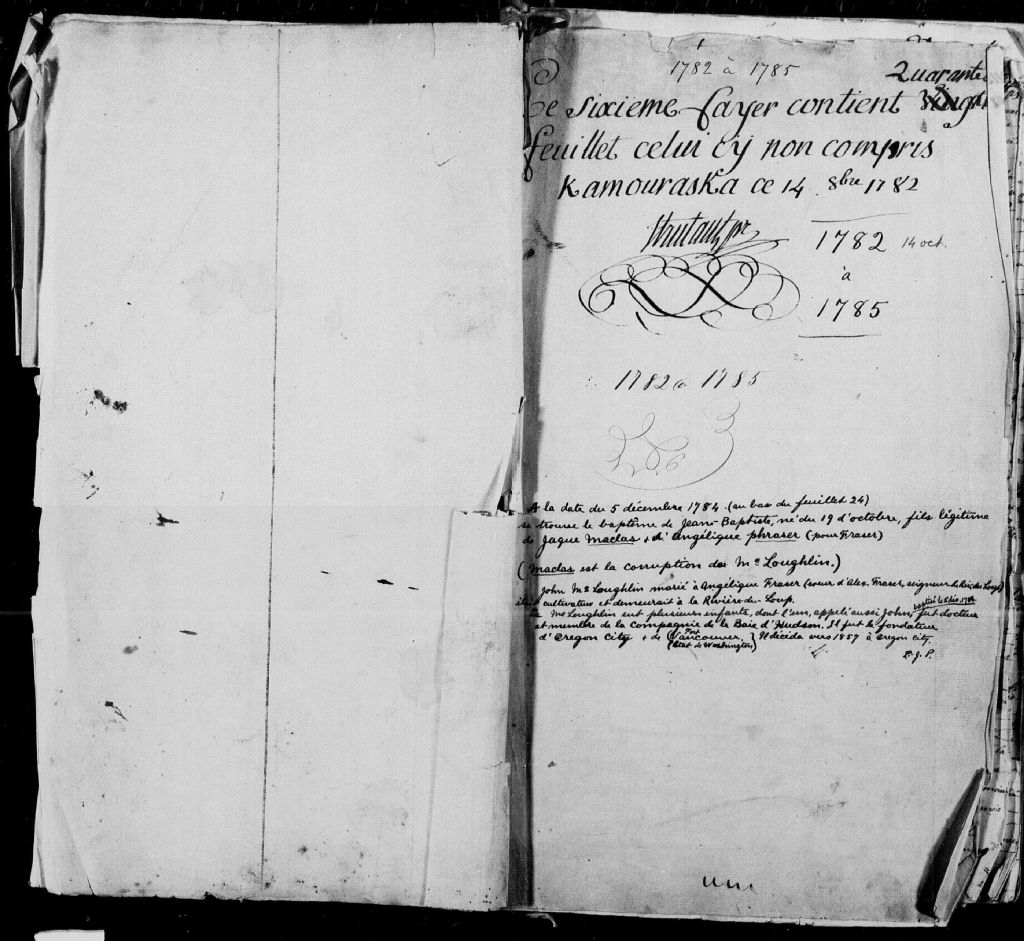 1782 à 1785
Quarante
Ce Sixieme Cayer contient Vingt
feuillet celui cy non compris
Kamouraska ce 14 8bre 1782
Trutaut ptr
1782 14 oct.
à
1785
1782 a 1785
A la date du 5 décembre 1784 (au bas du feuillet 24)
se trouve le baptême de Jean-Baptiste, né du 19 d'octobre, fils légitime
de Jaque Maclas & d'Angélique phraser (pour Fraser)
(Maclas est la corruption de Mc Loughlin.)
John Mc Loughlin marié à Angélique Fraser (soeur d'Alex. Fraser, seigneur Riv. du Loup)
était cultivateur et demeurait à la Rivière-du-Loup.
baptisé le 5 déc. 1784
Mc Loughlin eut plusieurs enfants, dont l'un, appelé aussi John, fut docteur
et membre de la Compagnie de la Baie d'Hudson. Il fut le fondateur
d'Oregon City & de Fort Vancouver, Il décéda vers 1857 à Oregon City.
(Etat de Washington)
P. J. P.